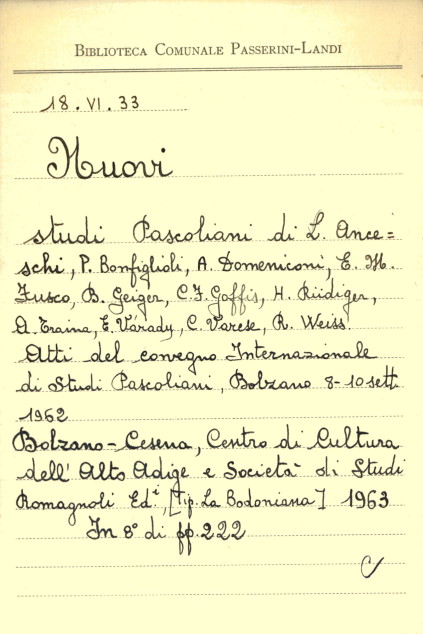 BIBLIOTECA COMUNALE PASSERINI-LANDI
18.VI.33
Nuovi
studi Pascoliani di L. Ance=
schi, P. Bonfiglioli, A. Domeniconi, E. M.
Fusco, B. Geiger, C. F. Goffis, H. Rüdiger,
A. Traina, E. Várady, C. Varese, R. Weiss.
Atti del convegno Internazionale
di Studi Pascoliani, Bolzano 8-10 sett.
1962
Bolzano-Cesena, Centro di Cultura
dell'Alto Adige e Società di Studi
Romagnoli Edⁱ, [Tip. La Bodoniana] 1963
In 8° di pp. 222